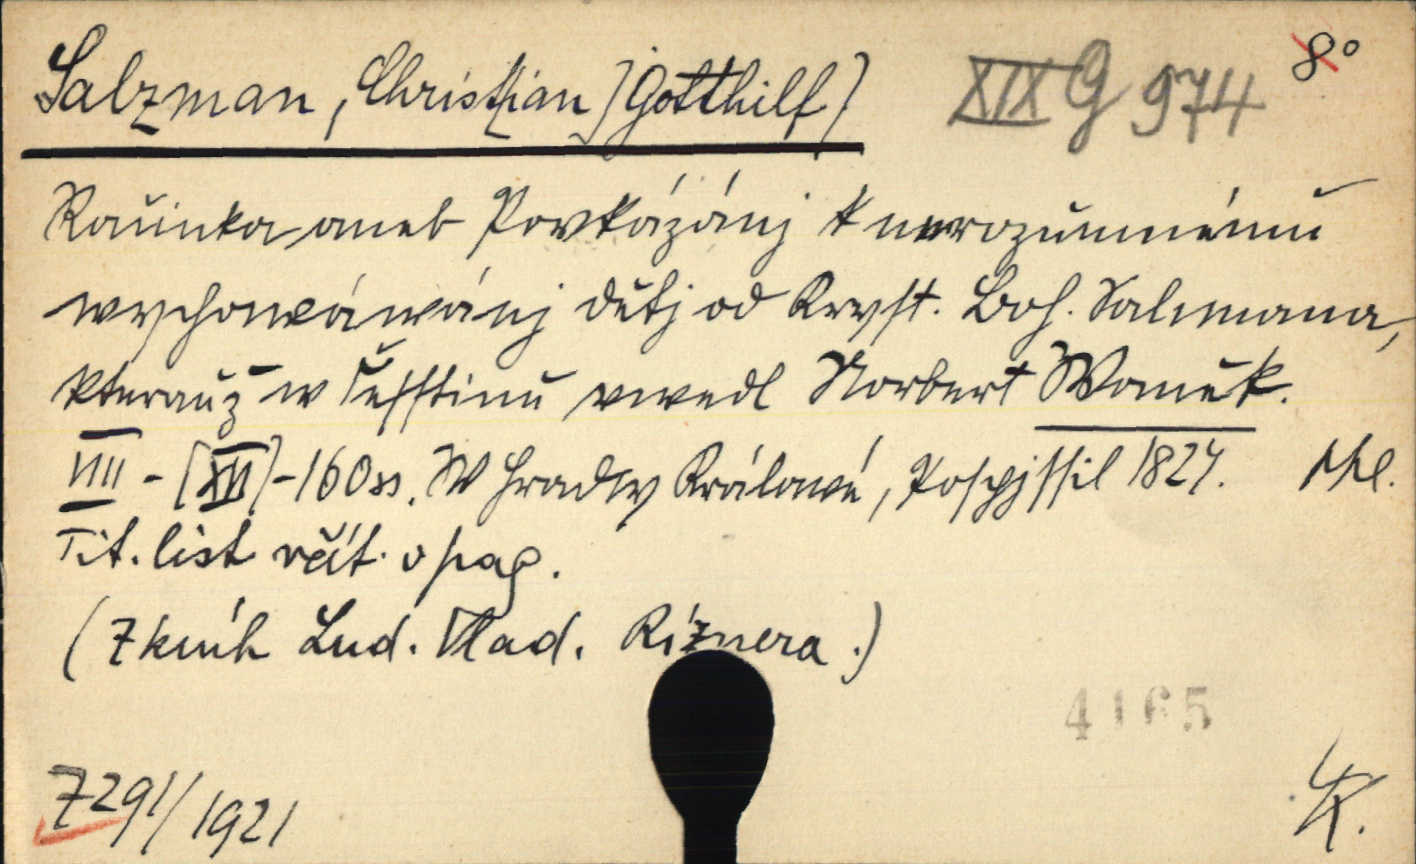 Salzman, Christian (Gotthilf) XIX G 974 8°
Račinka aneb Povkázánj k nerozumnému
wychowáwánj dětj od Kryst. Boh. Salcmana,
kterauž w češstinu uwedl Norbert Waněk.
VIII - [XVI] - 160 ss. W Hradcy Králowé, Pospjssil 1827.
Tit. list včít. v pag.
(Z knih Lud. Vlad. Riznera.)
4165
Z 291/1921